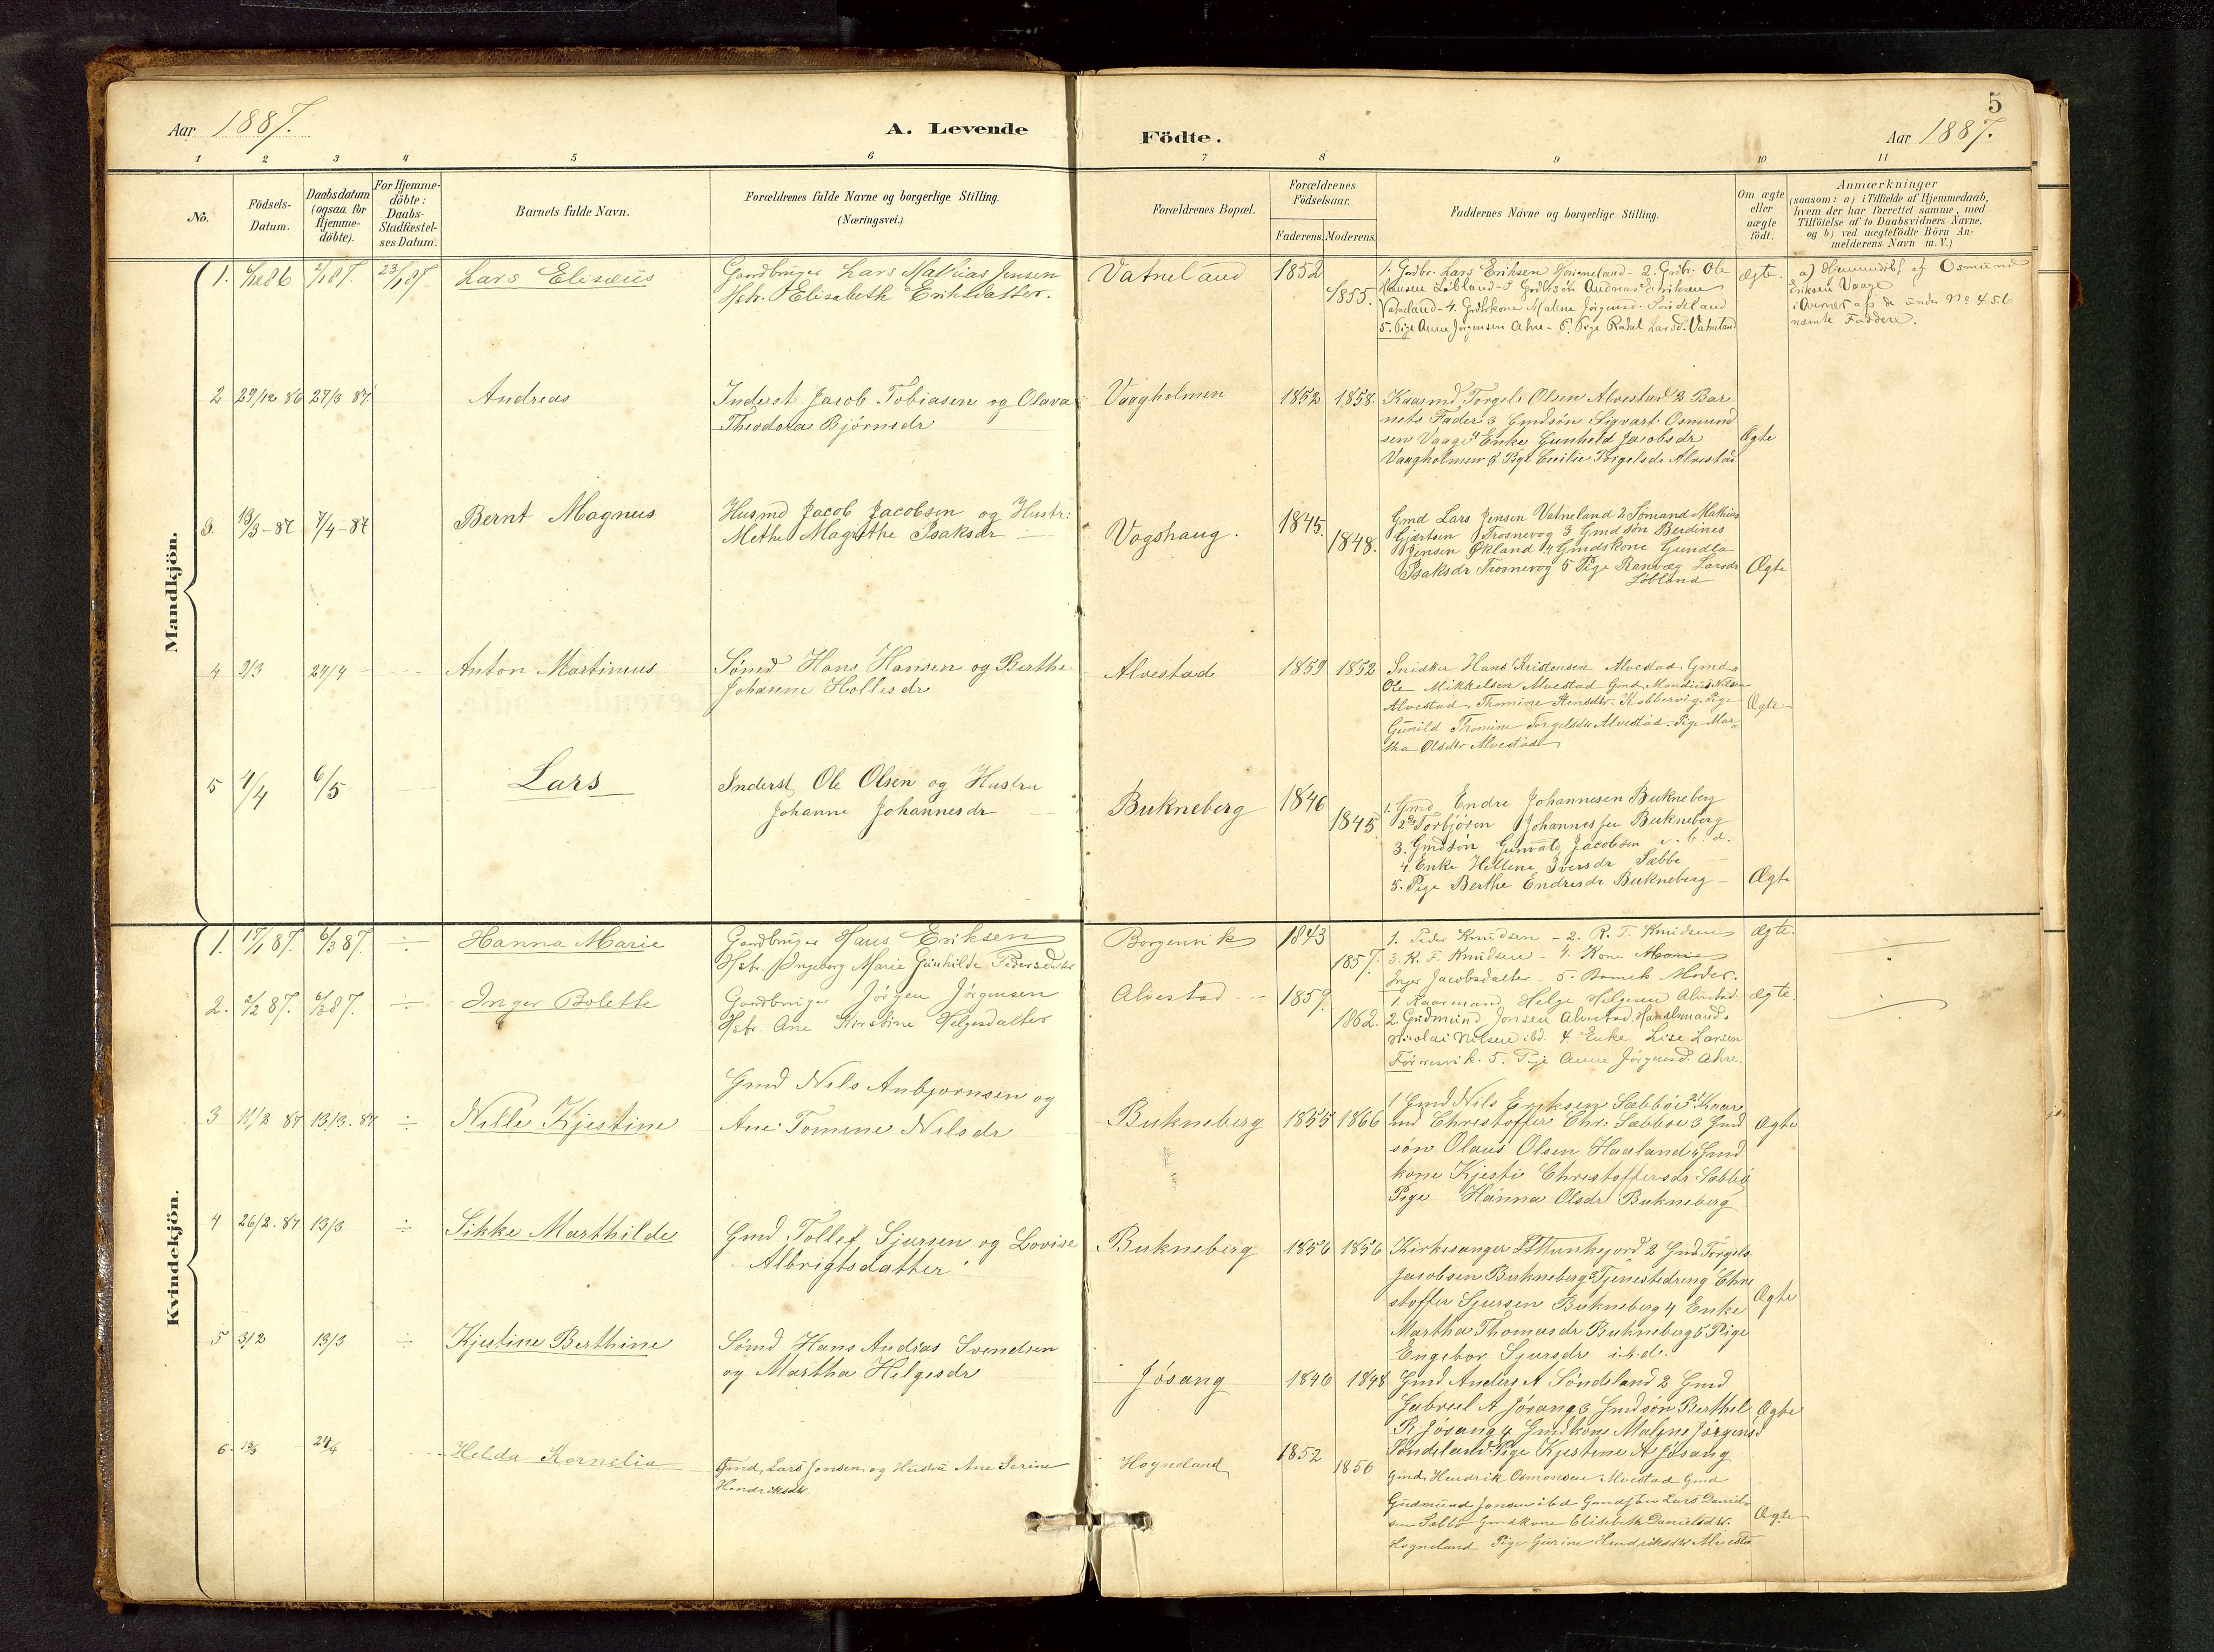 5
Aar 1887.
A. Levende
Födte.
Aar 1887.
1 2 3 4 5 6 7 8 9 10 11
No.
Födsels-
Datum.
Daabsdatum
(ogsaa for
Hjemme-
döbte).
For Hjemme-
döbte:
Daabs-
Stadfæstel-
ses Datum.
Barnets fulde Navn.
Forældrenes fulde Navne og borgerlige Stilling.
(Næringsvei.)
Forældrenes Bopæl.
Forældrenes
Födselsaar.
Faderens. Moderens.
Faddernes Navne og borgerlige Stilling.
Om ægte
eller
uægte
födt.
Anmærkninger
(saasom: a) i Tilfælde af Hjemmedaab,
hvem der har forrettet samme, med
Tilföielse af to Daabsvidners Navne,
og b) ved uægtefödte Börn An-
melderens Navn m. V.)
Mandkjön.
1.
Lars Elisæus
Gaardbruger Lars Mathias Jensen
Hstr. Elisabeth Eriksdatter.
Vatneland
1852
1855.
1. Grdbr. Lars Eriksen 2. Grdbr. Ole
Hansen Løbland - 3 Andreas
Vatneland - 4. Malene Jörgensd.
5. Pige Anne Jörgensen 6. Pige Rakel Larsd. Vatneland
Ægte.
a) Hjemmedöbt af Osmund
Eriksen Vaage
under No 4.5.6
nævnte Faddere.
2 29/12 86 27/3 87.
Andreas
Inderst Jacob Tobiasen og Olava
Theodora Bjørnsdr
Vaagholmen
1852 1858.
Kaarmd Torgels Olsen Alvestad 2 Bar
nets Fader 3 Gmdsön Sigvart Osmund
sen Vaage 4 Enke Gunhild Jacobsdr
Vaagholmen 5 Pige Cecilie Torgelsdr Alvestad
Ægte
3. 13/3-87 7/4-87
Bernt Magnus
Husmd Jacob Jacobsen og Hustr:
Methe Magrethe Isaksdr
Vagshaug.
1845.
1848.
Gmd Lars Jensen Vatneland 2 Sömand Mathias
Gjærtsen Trosnevog 3 Gmdsön Berdines
Jensen Økland 4 Gmdskone Gundla
Isaksdr Trosnevog 5 Pige Renvæg Larsdr
Löbland
Ægte
4 24/4
Anton Martinius
Sømd Hans Hansen og Berthe
Johanne Hollesdr
Alvestad
1859 1852
Snidker Hans Kristensen Alvestad, Gmd
Ole Mikkelsen Alvestad Gmd Mandius Nilsen
Alvestad, Thomine Kobbervig. Pige
Gunild Thomine Torgelsdtr Alvestad. Pige Mar
tha Olsdtr Alvestad
Ægte
5 4/4 6/5
Lars
Inderst Ole Olsen og Hustru
Johanne Johannesdr
Bukneberg
1846
1845
1. Gmd Endre Johannesen Bukneberg
2 Torbjören Johannessen Bukneberg
3. Gmdsön Jacobsen i. b. d.
4. Enke Hellene Iversdr Sæbbe
5. Pige Berthe Endresdr Bukneberg
Ægte
Kvindekjön.
1. 17/1 87. 6/3 87. ÷
Hanna Marie
Gaardbruger Hans Eriksen
Hstr. Ingeborg Marie Gunhilde Pedersdatter
Borgenvik
1843
1857.
1. Peder Knudsen - 2. R. T. Knudsen
3. K. F. Knudsen - 4. Kone Marie
Inger Jacobsdatter - 5. Barnets Moder.
Ægte.
÷
2. 2/2 87. 6/3 87. ÷
Inger Bolette
Gaardbruger Jörgen Jörgensen
Hstr. Ane Kirstine Helgesdatter
Alvestad
1859.
1862.
1. Kaarmand Helge Helgesen Alvestad.
2. Gudmund Jonsen Alvestad.
Nicolai Nilsen ibd. 4. Enke Lise Larsen
5. Pige Anne Jörgensd.
Ægte.
÷
3 11/2 87 13/3.87 ÷
Nille Kjestine
Gmd Nils Anbjørnsen og
Ane Tomine Nilsdr
Bukneberg
1855 1866
1 Gmd Nils Eriksen Sæbböe 2 Kaar
md Christoffer Chr: Sæbböe 3 Gmd
sön Olaus Olsen Haaland 4 Gmd
kone Kjesti Christoffersdr Sæbbö
Pige Hanna Olsdr Bukneberg
Ægte
4 26/2.87 13/3 ÷
Sikke Marthilde
Gmd Tollef Sjursen og Lovise
Albrigtsdatter
Bukneberg
1856 1856
Kirkesanger 2 Gmd Torgels
Jacobsen Bukneberg 3 Tjenestedreng Chri
stoffer Sjursen Bukneberg 4 Enke
Martha Thomasdr Bukneberg 5 Pige
Engebor Sjursdr i.b.d.
Ægte
5 3/2 13/3 ÷
Kjestine Berthine
Sømd Hans Andras Svendsen
og Martha Helgesdr
Jösang
1846 1848
Gmd Anders A Söndeland 2 Gmd
Gabriel A Jösang 3 Gmdsön Berthel
R Jösang 4 Gmdkone Malene Jörgensd
Söndeland Pige Kjestine A Jösang
Ægte
6. 24/4
Helda Kornelia
Gmd, Lars Jonsen og Hustru Ane Serine
Hendriksdtr.
Hogneland
1852
1856
Gmd, Hendrik Osmonsen Alvestad Gmd
Gudmund Jonsen ibd Lars Daniel
sen Sæbbö Gmdkone Elisebeth Danielsdtr.
Hogneland Pige Gurine Hendriksdtr Alvestad
Ægte